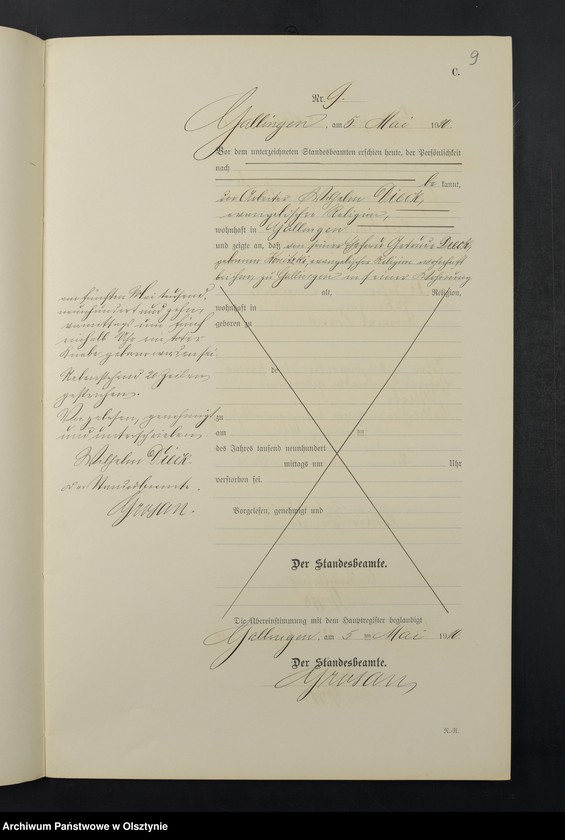 9
C.
Nr. 9.
Gallingen, am 5. Mai 1910.
Vor dem unterzeichneten Standesbeamten erschien heute, der Persönlichkeit
nach
be kannt,
der Arbeiter Wilhelm Dieck,
evangelischer Religion,
wohnhaft in Gallingen
und zeigte an, daß von seiner Ehefrau Gertrude Dieck,
geborenen evangelischer Religion wohnhaft
bei ihm zu Gallingen in seiner Wohnung
alt, Religion,
wohnhaft in
geboren zu
de
zu
am ten
des Jahres tausend neunhundert
mittags um Uhr
verstorben sei.
Vorgelesen, genehmigt und
Der Standesbeamte.
am fünften Mai tausend
neunhundert und zehn
vormittags um fünf
einhalb Uhr ein toter
Knabe geboren worden sei.
Nebenstehend 20 Zeilen
gestrichen.
Vorgelesen, genehmigt
und unterschrieben
Wilhelm Dieck.
Der Standesbeamte.
Grosan.
Die Übereinstimmung mit dem Hauptregister beglaubigt
Gallingen, am 5 ten Mai 1910.
Der Standesbeamte.
Grosan
N.-R.
Archiwum Państwowe w Olsztynie